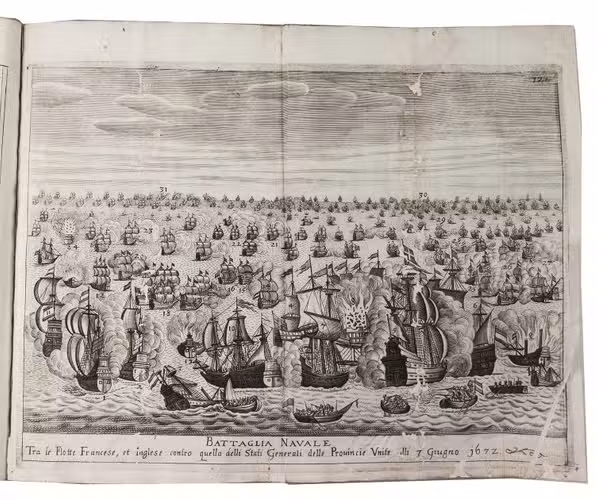 31
30
29
23
22
21
BATTAGLIA NAVALE
Tra le Flotte Francese, et inglese contro quella delli Stati Generali delle Provincie Vnite alli 7 Giugno 1672.